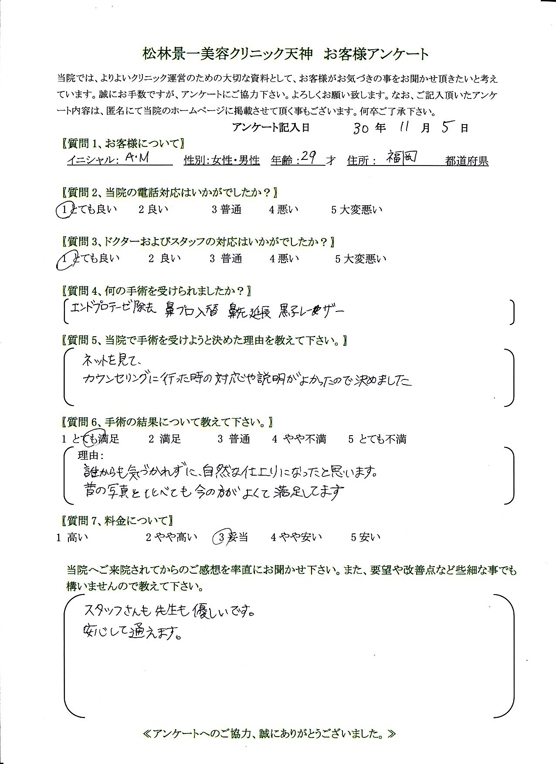 松林景一美容クリニック天神　お客様アンケート
当院では、よりよいクリニック運営のための大切な資料として、お客様がお気づきの事をお聞かせ頂きたいと考え
ています。誠にお手数ですが、アンケートにご協力下さい。よろしくお願い致します。なお、ご記入頂いたアンケ
ート内容は、匿名にて当院のホームページに掲載させて頂く事もございます。何卒ご了承下さい。
アンケート記入日　30 年 11 月 5 日
【質問 1、お客様について】
イニシャル： A・M　性別：女性・男性　年齢：29 才　住所： 福岡　都道府県
【質問 2、当院の電話対応はいかがでしたか？】
1 とても良い　2 良い　3 普通　4 悪い　5 大変悪い
【質問 3、ドクターおよびスタッフの対応はいかがでしたか？】
1 とても良い　2 良い　3 普通　4 悪い　5 大変悪い
【質問 4、何の手術を受けられましたか？】
エンドプロテーゼ除去　鼻プロ入替　鼻先延長　黒子レーザー
【質問 5、当院で手術を受けようと決めた理由を教えて下さい。】
ネットを見て、
カウンセリングに行った時の対応や説明がよかったので決めました
【質問 6、手術の結果について教えて下さい。】
1 とても満足　2 満足　3 普通　4 やや不満　5 とても不満
理由：
誰からも気づかれずに、自然な仕上りになったと思います。
昔の写真とくらべても今の方がよくて満足してます
【質問 7、料金について】
1 高い　2 やや高い　3 妥当　4 やや安い　5 安い
当院へご来院されてからのご感想を率直にお聞かせ下さい。また、要望や改善点など些細な事でも
構いませんので教えて下さい。
スタッフさんも先生も優しいです。
安心して通えます。
≪アンケートへのご協力、誠にありがとうございました。≫